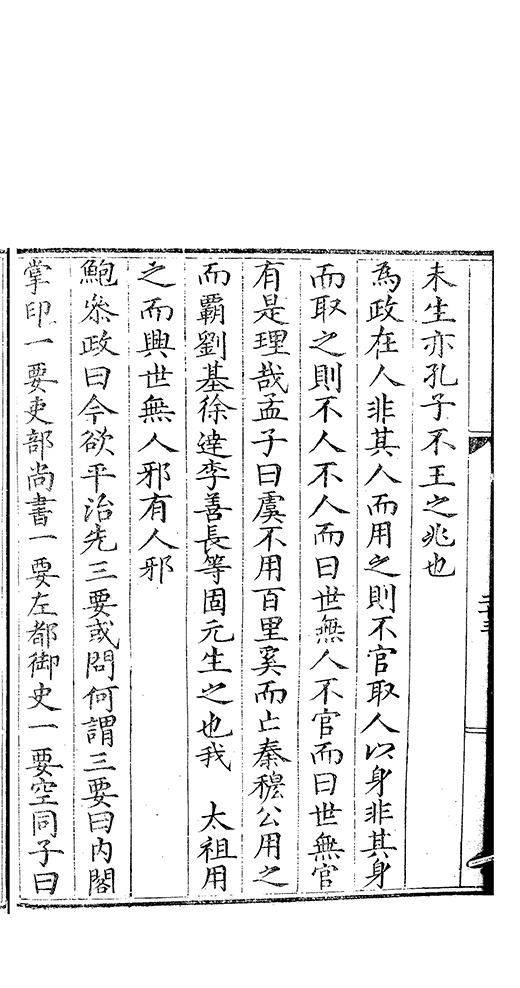 未生亦孔子不王之兆也
為政在人非其人而用之則不官取人以身非其身
而取之則不人不人而曰世無人不官而曰世無官
有是理哉孟子曰虞不用百里奚而亡秦穆公用之
而霸劉基徐達李善長等固元生之也我　太祖用
之而興世無人邪有人邪
鮑叅政曰今欲平治先三要或問何謂三要曰内閣
掌印一要吏部尚書一要左都御史一要空同子曰